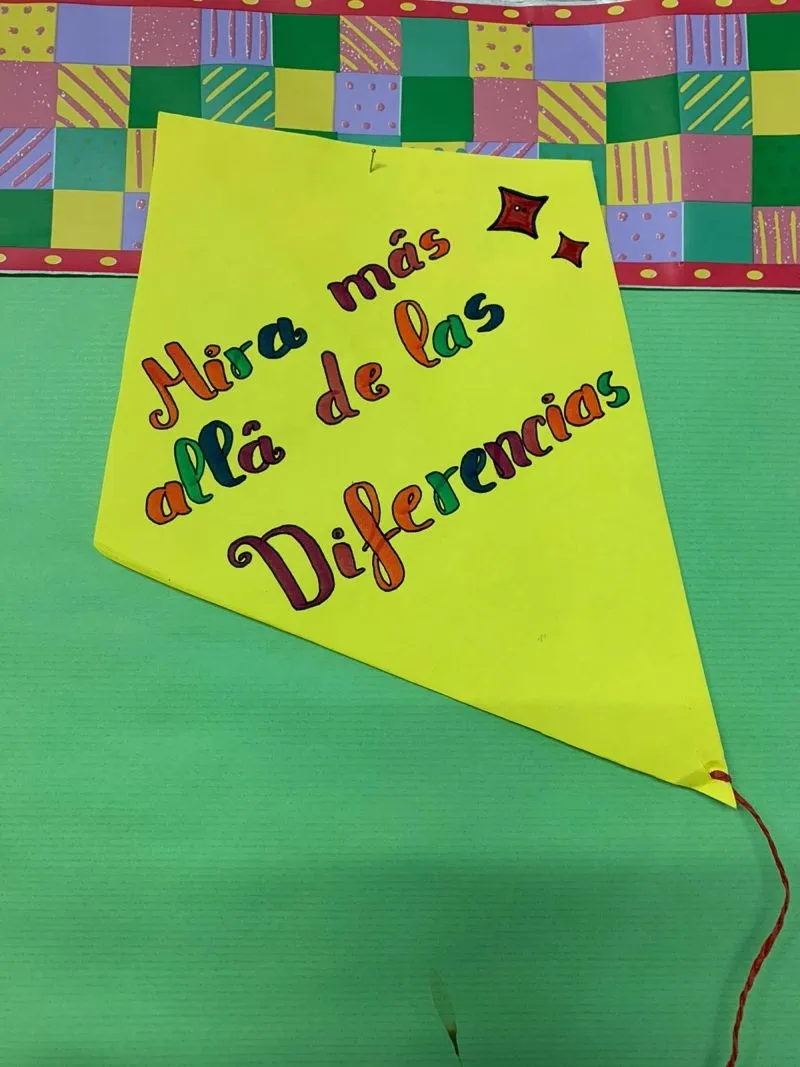 Mira más
allá de las
Diferencias